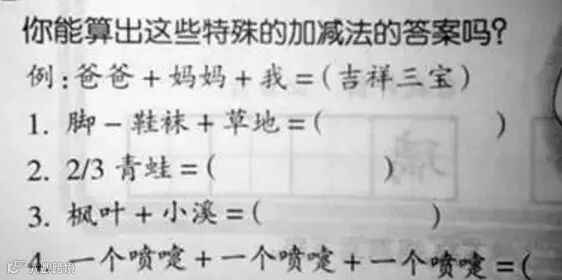 你能算出这些特殊的加减法的答案吗?
例:爸爸+妈妈+我=(吉祥三宝)
1. 脚-鞋袜+草地=( )
2. 2/3 青蛙=( )
3. 枫叶+小溪=( )
4. 一个喷嚏+一个喷嚏+一个喷嚏=(